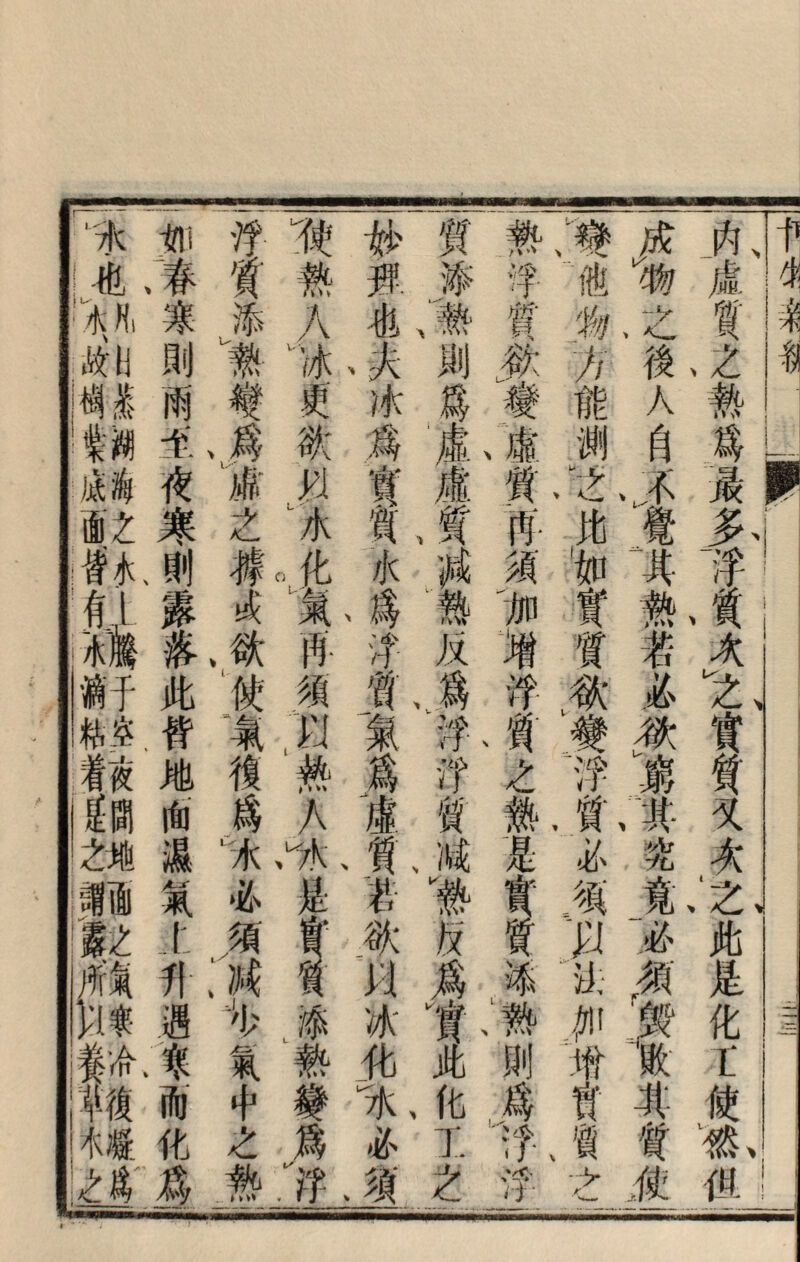 博物新編
內虛質之熱爲最多浮質次之實質又次之此是化工使然但
成物之後人自不覺其熱若必欲窮其究竟必須毀敗其質使
變他物方能測之比如實質欲變浮質必須以法加增實質之
熱浮質欲變虛質再須加增浮質之熱是實質添熱則爲浮浮
質添熱則爲虛虛質減熱反爲浮浮質減熱反爲實此化工之
妙理也夫冰爲實質水爲浮質氣爲虛質若欲以冰化水必須
使熱入冰更欲以水化氣再須以熱入水是實質添熱變爲浮
浮質添熱變爲虛之據。或欲使氣復爲水必須減少氣中之熱
如春寒則雨至夜寒則露落此皆地面濕氣上升遇寒而化爲
水也凡日蒸湖海之水上騰于空夜間地面之氣寒冷復凝爲
水故樹葉底面皆有水滴粘着是之謂露所以養草木之